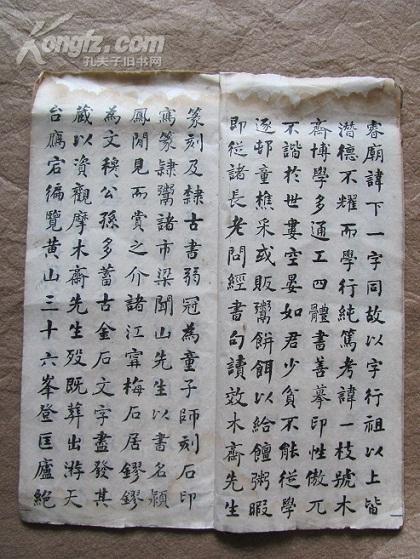 Kongfz.com
孔夫子旧书网
睿廟諱下一字同故以字行祖以上皆
潛德不耀而學行純篤考諱一枝號木
齋博學多通工四體書善摹印性傲兀
不諧於世婁空晏如君少貧不能從學
逐邨童樵采或販鬻餅餌以給饘粥暇
即從諸長老問經書句讀效木齋先生
篆刻及隸古書弱冠為童子師刻石印
寫篆隸鬻諸市梁聞山先生以書名潁
鳳閒見而賞之介諸江寗梅石居鏐鏐
為文穆公孫多蓄古金石文字盡發其
藏以資觀摩木齋先生歿既葬出游天
台鴈宕徧覽黃山三十六峯登匡廬絕